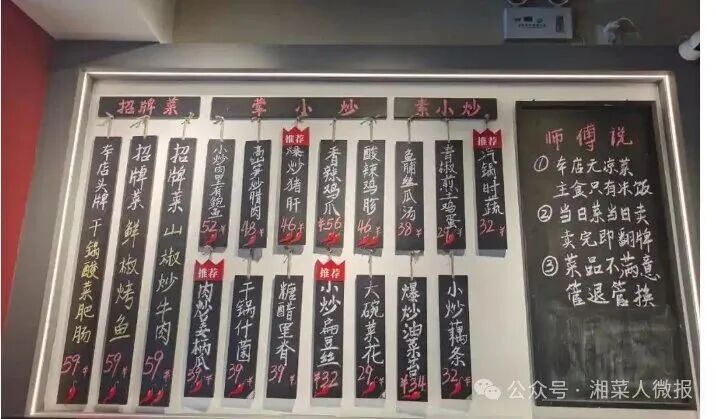 招牌菜
本店头牌 干锅酸菜肥肠 59
招牌菜 鲜椒烤鱼 59
招牌菜 山椒炒牛肉 59
荤小炒
小炒肉里有鲍鱼 52
高山笋炒腊肉 48
推荐
爆炒猪肝 46
香辣鸡爪 ¥56
酸辣鸡胗 46
推荐
肉炒茭柄瓜 39
干锅什菌 39
糖醋里脊 39
推荐
小炒扁豆丝 ¥32
大碗菜花 29
素小炒
鱼脯丝瓜汤 38
青椒煎土鸡蛋 29
推荐
汽锅时蔬 32
爆炒油菜苔 ¥34
小炒藕条 32
师傅说
① 本店无凉菜
主食只有米饭
② 当日菜当日卖
卖完即翻牌
③ 菜品不满意
管退管换
公众号·湘菜人微报